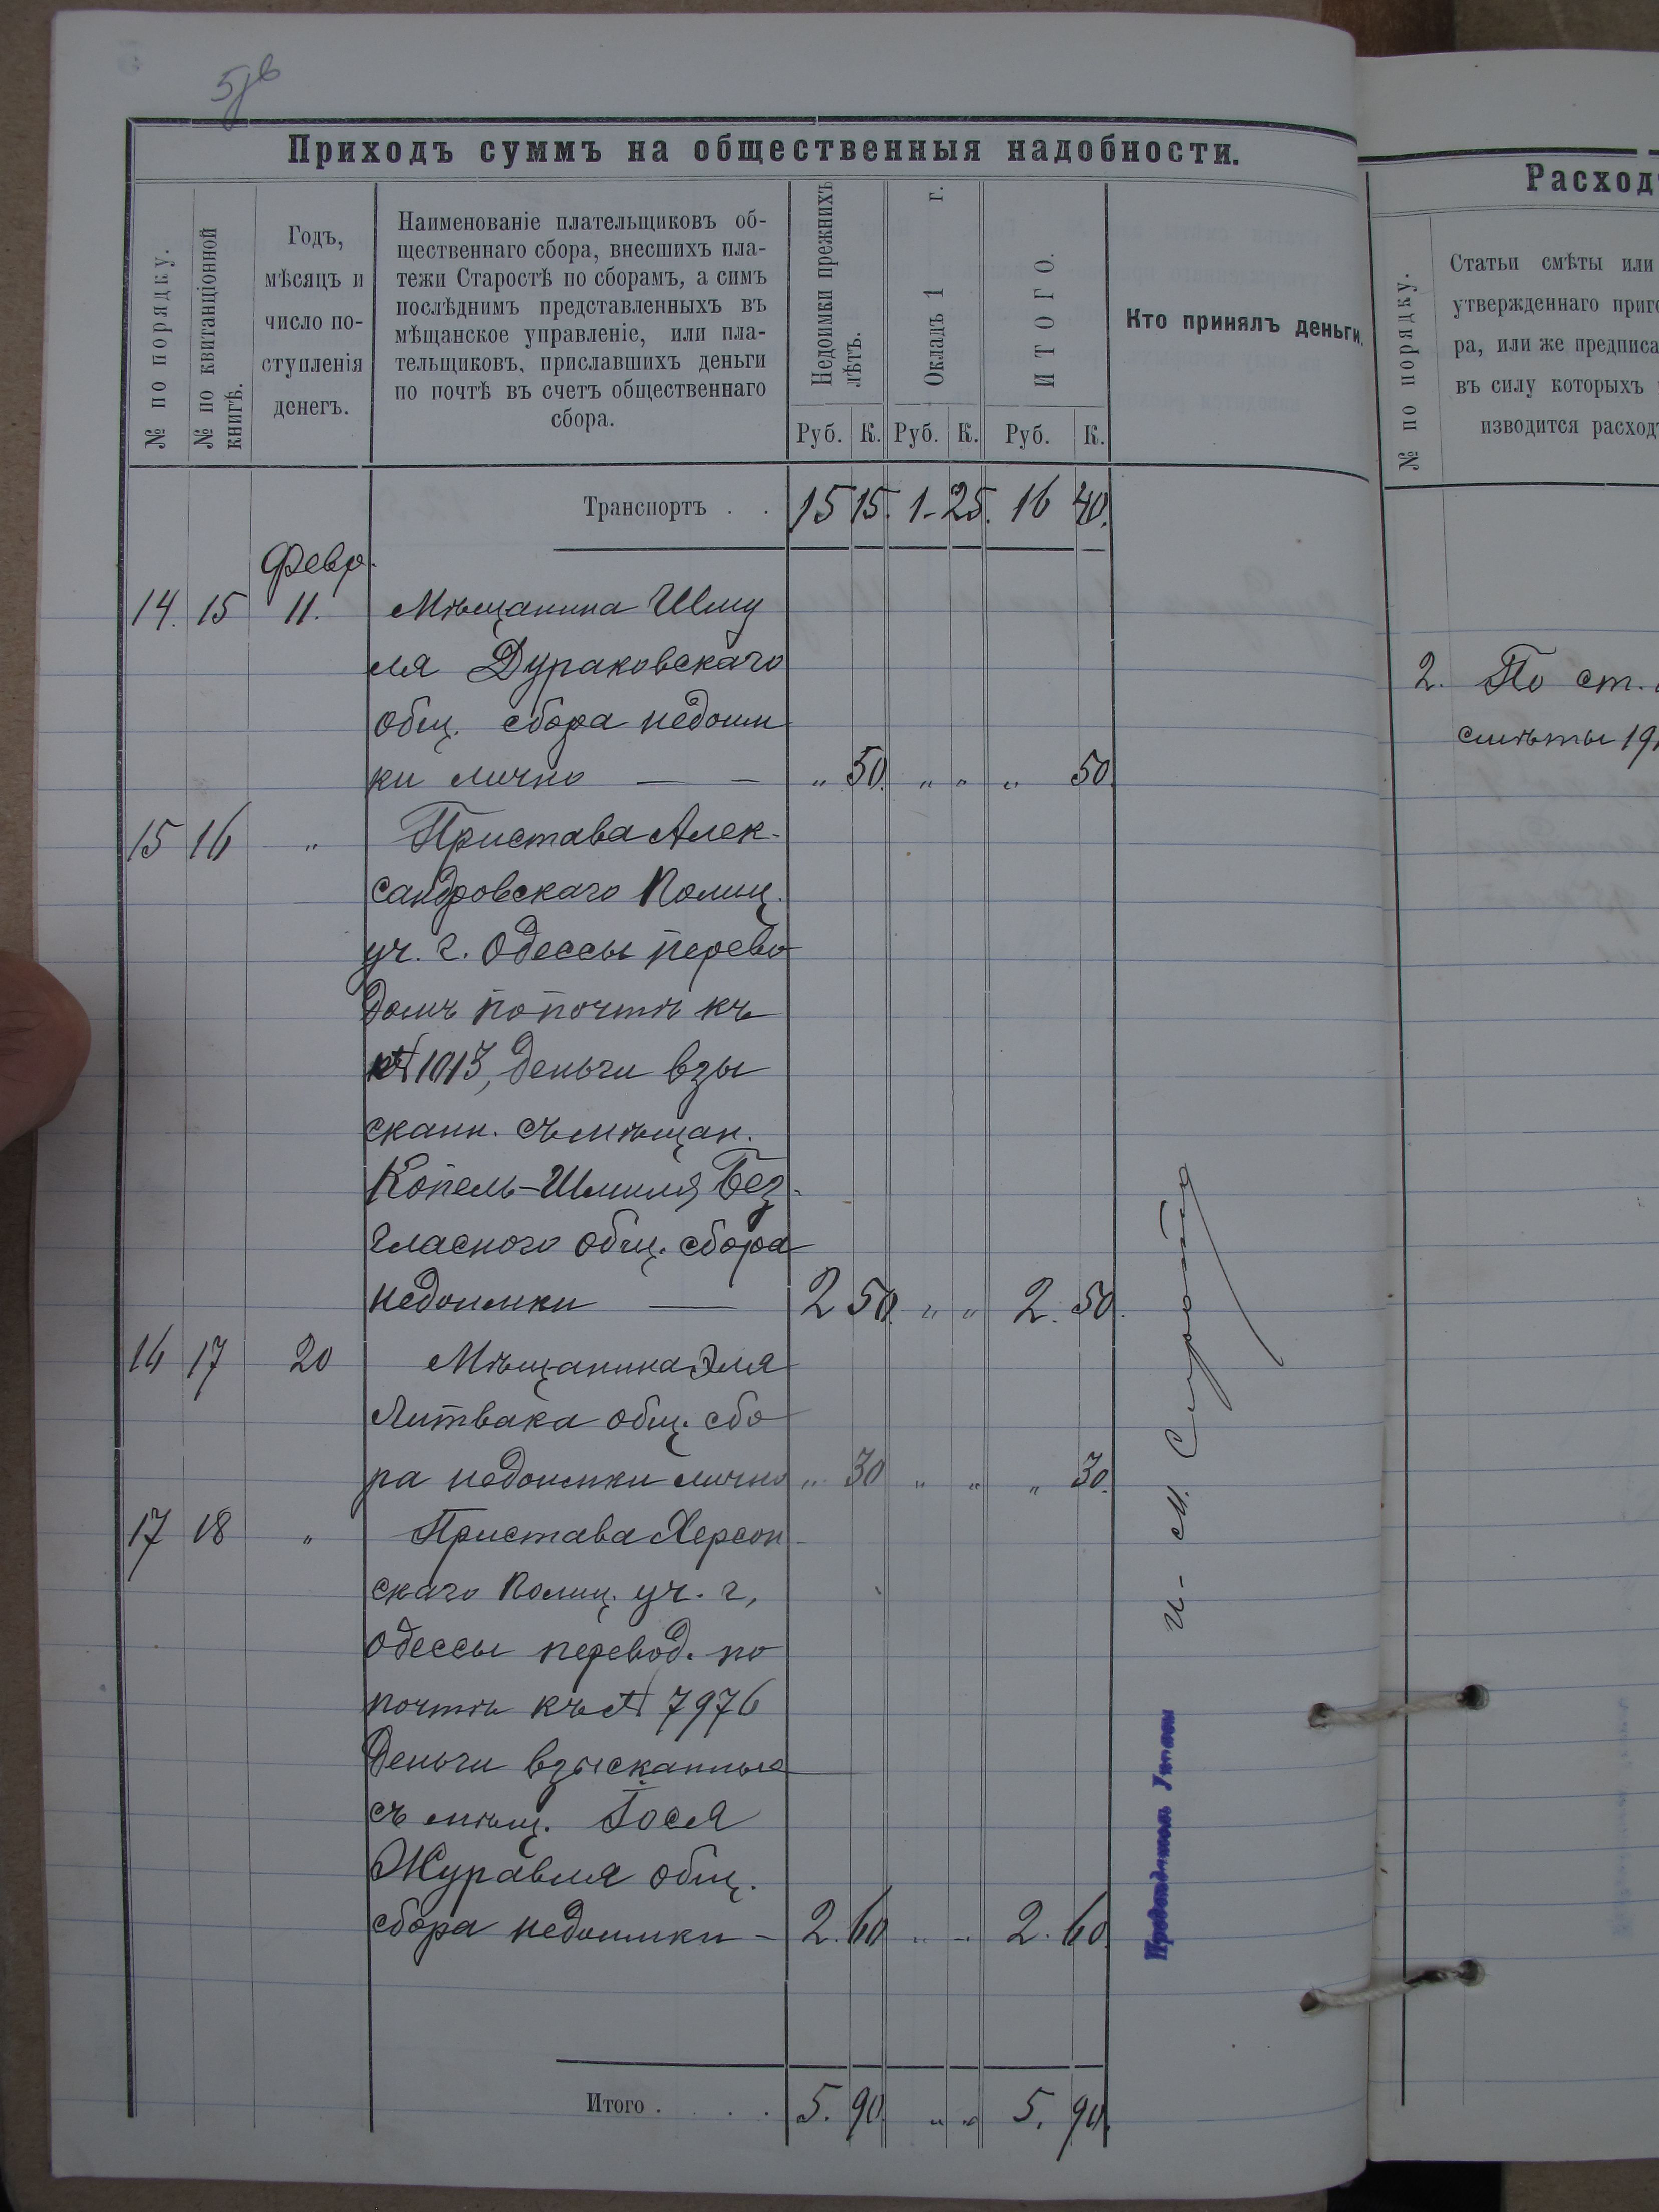 5об
Приходъ суммъ на общественныя надобности.
№ по порядку.
№ по квитанціонной
книгѣ.
Годъ,
мѣсяцъ и
число по-
ступленія
денегъ.
Наименованіе плательщиковъ об-
щественнаго сбора, внесшихъ пла-
тежи Старостѣ по сборамъ, а симъ
послѣднимъ представленныхъ въ
мѣщанское управленіе, или пла-
тельщиковъ, приславшихъ деньги
по почтѣ въ счетъ общественнаго
сбора.
Недоимки прежнихъ
лѣтъ.
Окладъ 1 г.
ИТОГО.
Кто принялъ деньги.
Руб. К. Руб. К. Руб. К.
Транспортъ . . 15 15. 1- 25. 16 40.
Февр.
14. 15 11. Мѣщанина Шму
ля Дураковскаго
общ. сбора недоим
ки лично — — „ 50. „ „ „ 50.
15 16 „ Пристава Алек-
сандровскаго Полиц.
уч. г. Одессы перево
домъ по почтѣ къ
№ 1013, деньги взы
сканн. съ мѣщан.
Копель-Шмиля Без-
гласного общ. сбора
недоимки — 2 50. „ „ 2. 50.
16 17 20 Мѣщанина Эля
Литвака общ. сбо
ра недоимки лично „ 30 „ „ „ 30.
17 18 „ Пристава Херсон-
скаго Полиц. уч. г.
Одессы перевод. по
почтѣ къ № 7976
деньги взысканные
съ мѣщ. Іося
Журавля общ.
сбора недоимки - 2. 60 „ „ 2. 60.
Итого . . . 5. 90. „ „ 5. 90.
И- М.
Расход
№ по порядку.
Статьи смѣты или
утвержденнаго
ра, или же
въ силу которыхъ
изводится
2. По ст.
смѣты 19